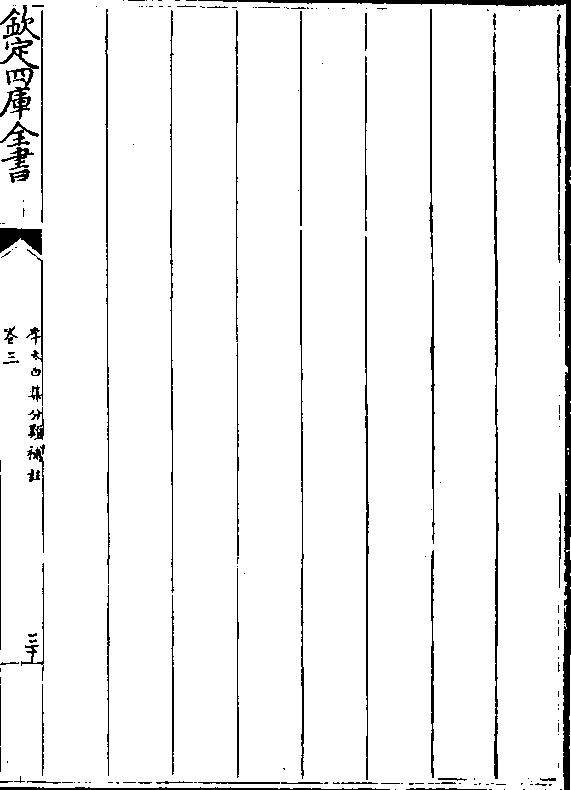 欽定四庫全書
李太白集分類補註
卷三
三十